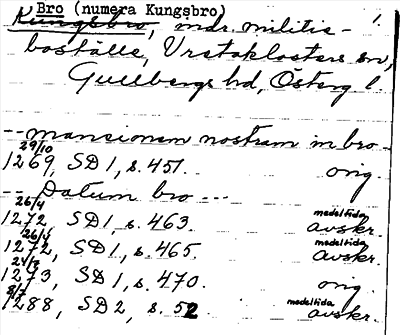 Bro (numera Kungsbro)
1.
Kungsbro, mdr. militie-
boställe, Vretaklosters sn,
Gullbergs hd, Österg l.
-- mansionem nostram in bro -
29/10
1269, SD 1, s. 451. orig.
-- Datum bro ---
26/4
1272, SD 1, s. 463. medeltida avskr.
26/4
1272, SD 1, s. 465. medeltida avskr.
1273, SD 1, s. 470. orig.
8/7
1288, SD 2, s. 52 medeltida avskr.